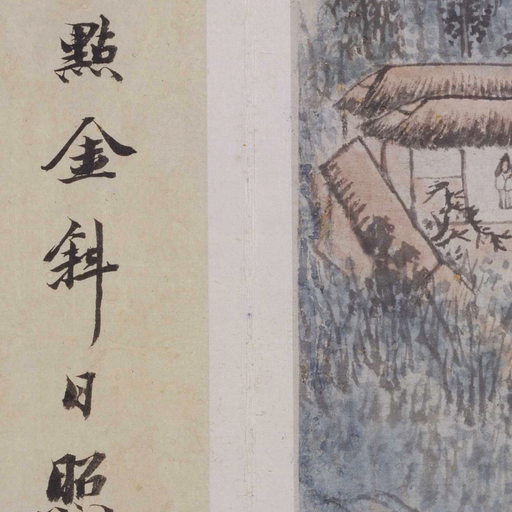 點金斜日照